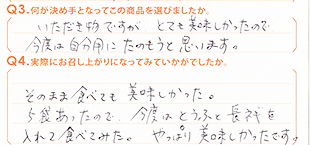 Q3.何が決め手となってこの商品を選びましたか。
いただき物ですが とても美味しかったので
今度は自分用にたのもうと思います。
Q4.実際にお召し上がりになってみていかがでしたか。
そのまま食べても美味しかった。
5食あったので、今度はとうふと長ねぎを
入れて食べてみた。 やっぱり美味しかったです。